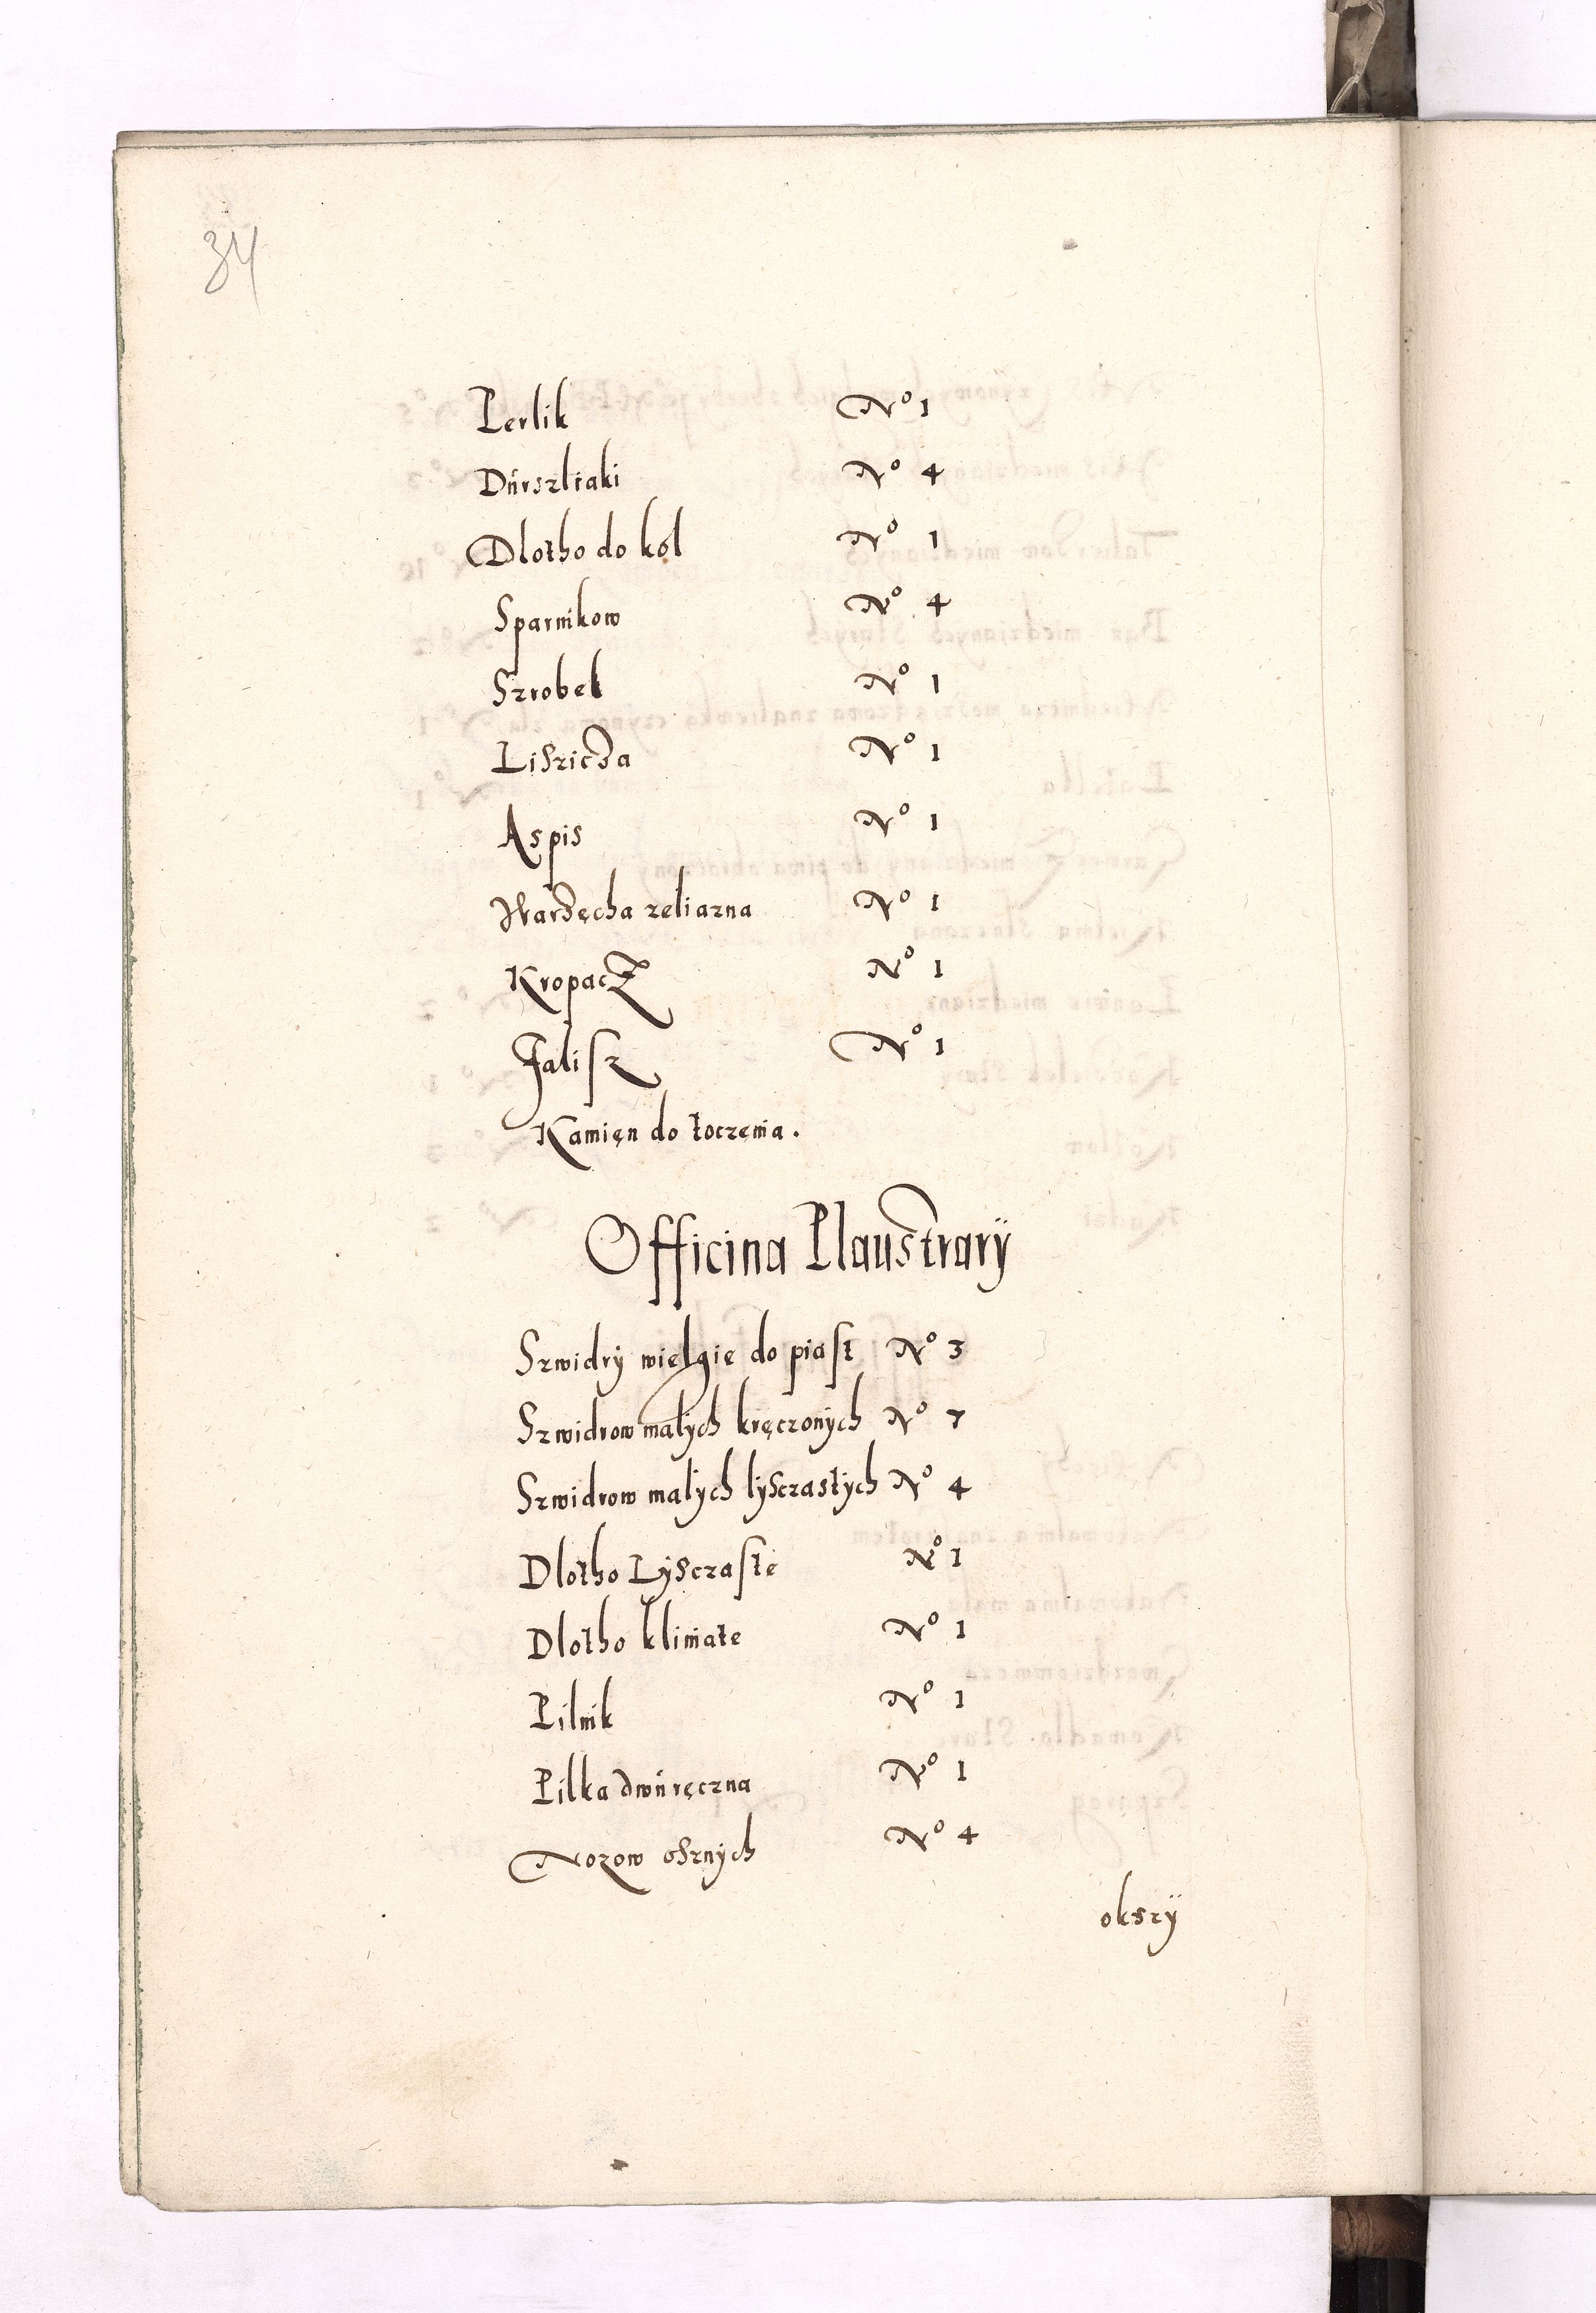 34
Perlik N° 1
Durszliaki N° 4
Dlotho do kol N° 1
Sparnikow N° 4
Szrobel N° 1
Liszicza N° 1
Aspis N° 1
Wardęcha zeliazna N° 1
Kropacz N° 1
Jalisz N° 1
Kamięn do toczęnia.
Officina Plaustrarÿ
Szwidrÿ wielgie do piast N° 3
Szwidrow małych kręczonÿch N° 7
Szwidrow małÿch lÿsczastÿch N° 4
Dlotho Lÿsczaste N° 1
Dlotho kliniate N° 1
Pilnik N° 1
Pilka dwuręczna N° 1
Nozow osznÿch N° 4
okszÿ